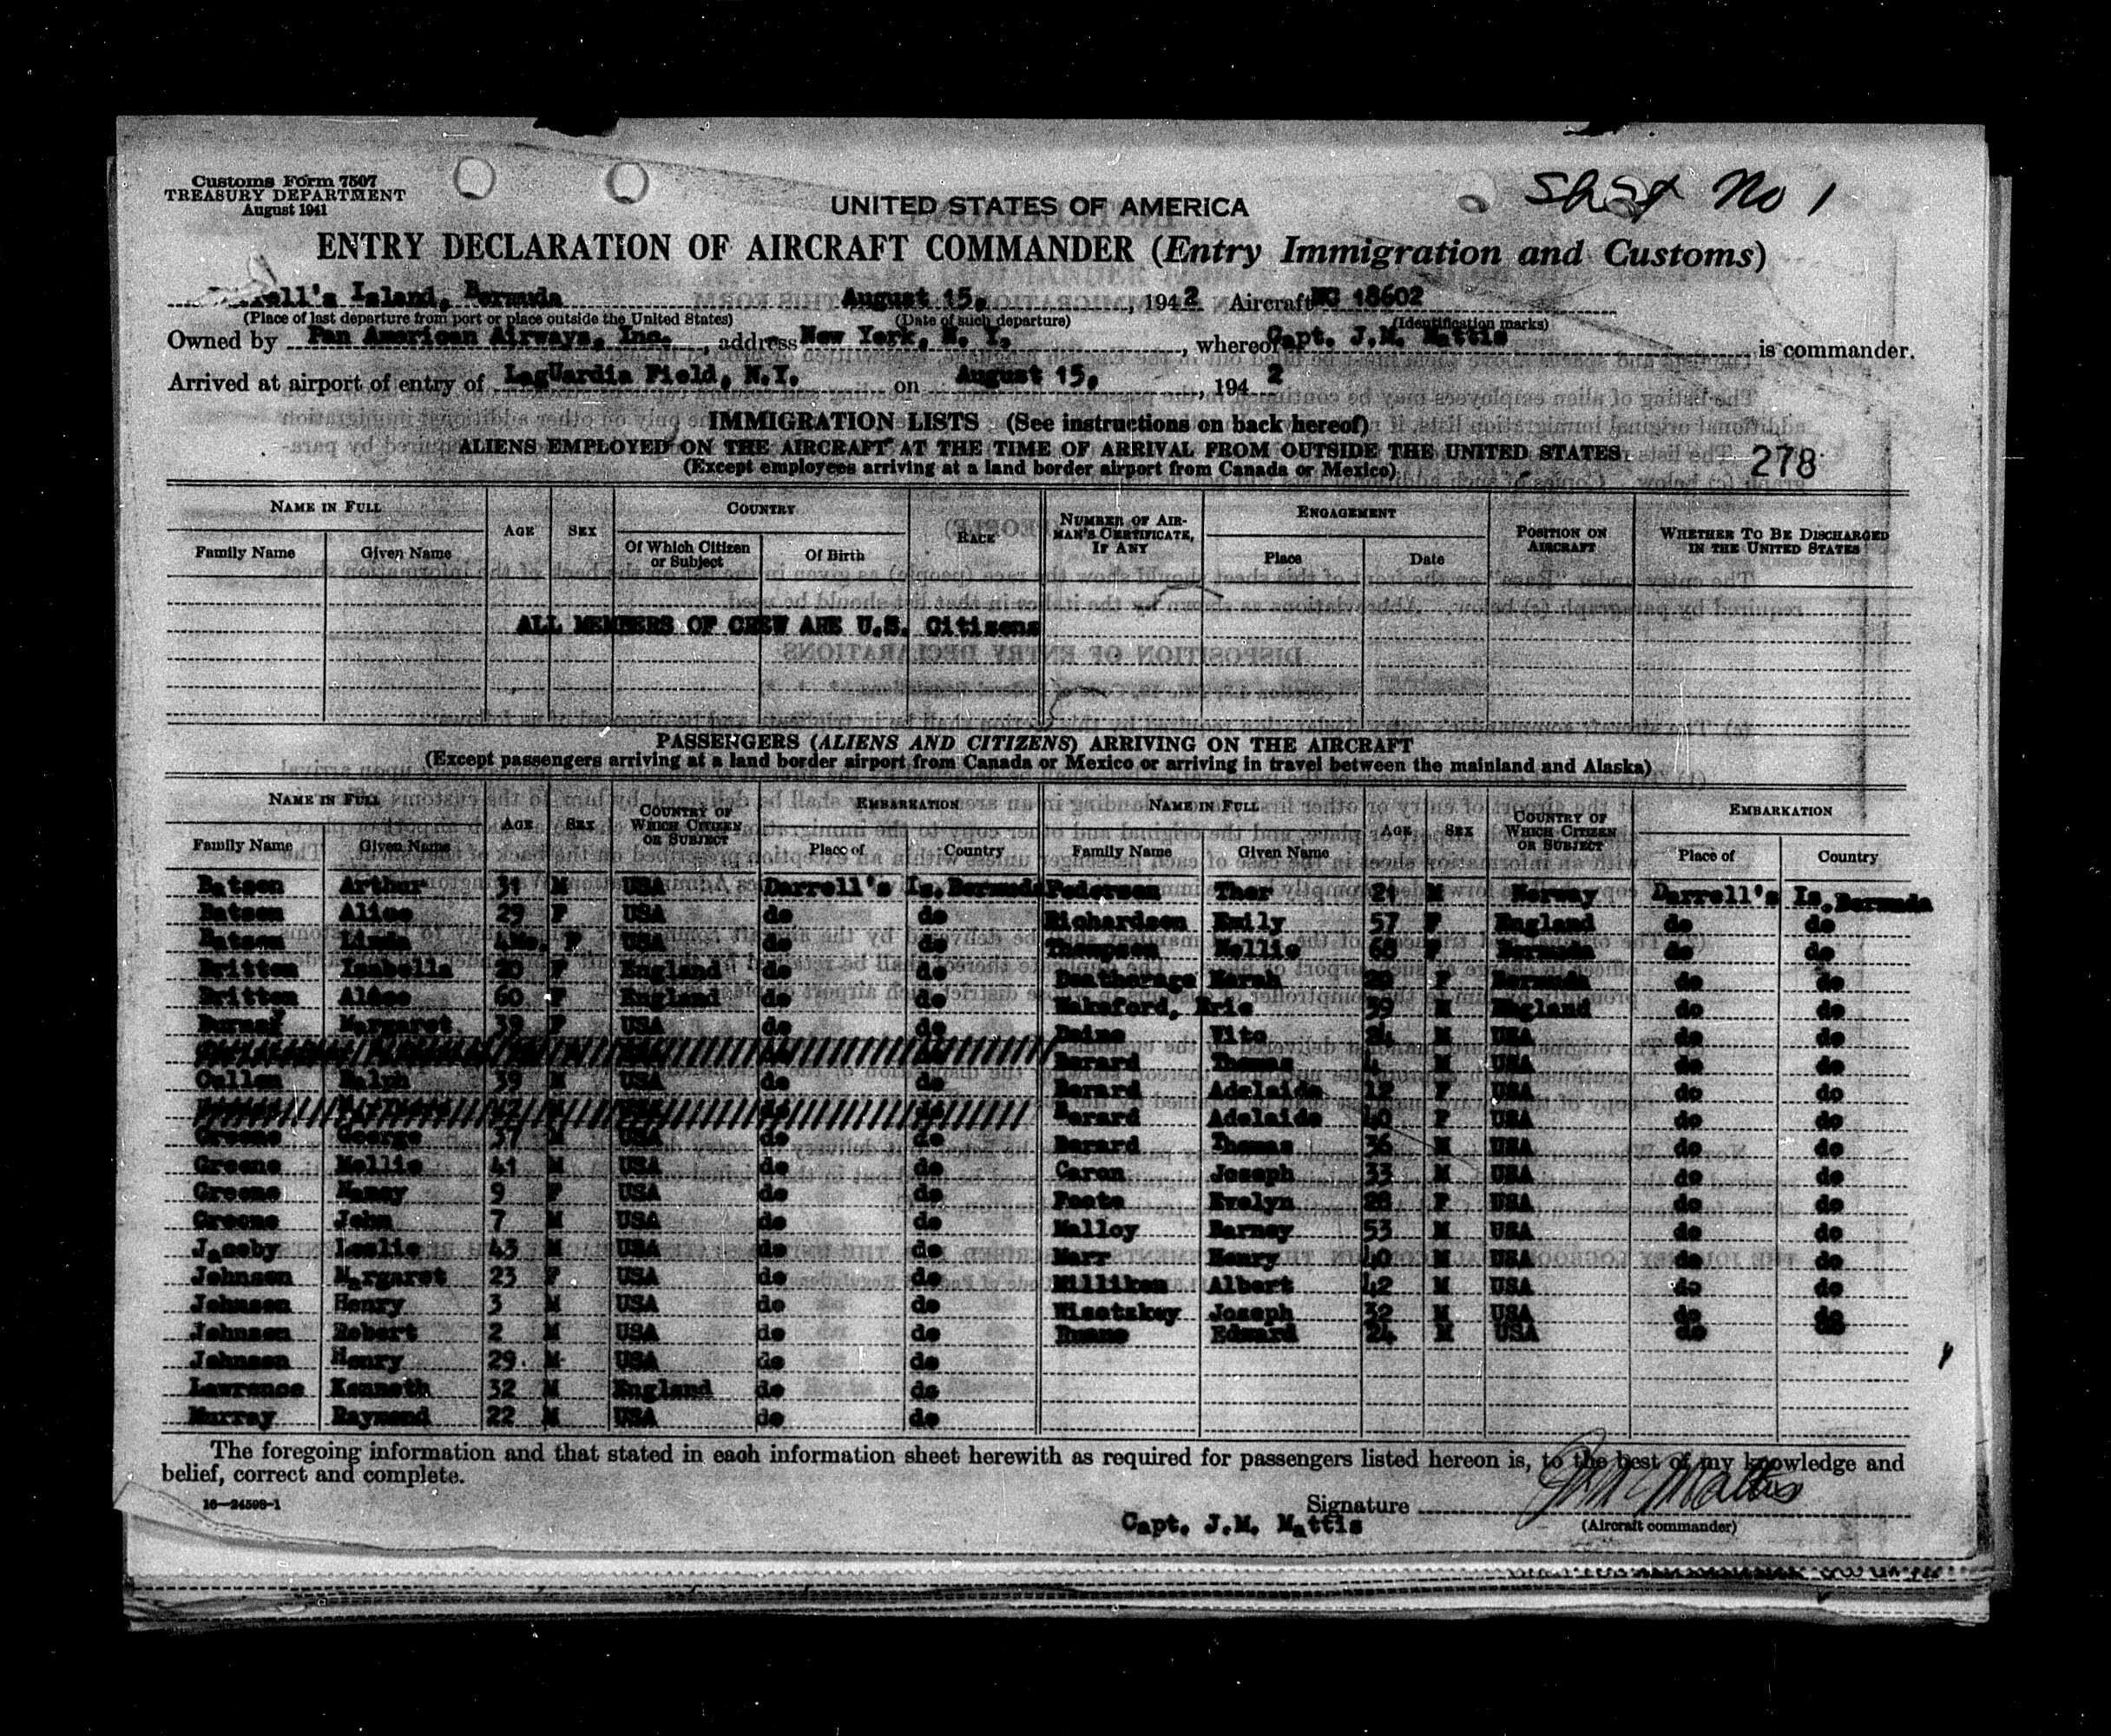 Customs Form 7507
TREASURY DEPARTMENT
August 1941
Sheet No 1
UNITED STATES OF AMERICA
ENTRY DECLARATION OF AIRCRAFT COMMANDER (Entry Immigration and Customs)
Darrell's Island, Bermuda August 15, , 1942 Aircraft NC 18602
(Place of last departure from port or place outside the United States) (Date of such departure) (Identification marks)
Owned by Pan American Airways, Inc. , address New York, N. Y. , whereof Capt. J.M. Mattis is commander.
Arrived at airport of entry of LaGuardia Field, N.Y. on August 15, , 1942
IMMIGRATION LISTS (See instructions on back hereof)
ALIENS EMPLOYED ON THE AIRCRAFT AT THE TIME OF ARRIVAL FROM OUTSIDE THE UNITED STATES
(Except employees arriving at a land border airport from Canada or Mexico)
278
NAME IN FULL AGE SEX COUNTRY RACE NUMBER OF AIRMAN'S CERTIFICATE, IF ANY ENGAGEMENT POSITION ON AIRCRAFT WHETHER TO BE DISCHARGED IN THE UNITED STATES
Family Name Given Name Of Which Citizen or Subject Of Birth Place Date
ALL MEMBERS OF CREW ARE U.S. Citizens
PASSENGERS (ALIENS AND CITIZENS) ARRIVING ON THE AIRCRAFT
(Except passengers arriving at a land border airport from Canada or Mexico or arriving in travel between the mainland and Alaska)
NAME IN FULL AGE SEX COUNTRY OF WHICH CITIZEN OR SUBJECT EMBARKATION NAME IN FULL AGE SEX COUNTRY OF WHICH CITIZEN OR SUBJECT EMBARKATION
Family Name Given Name Place of Country Family Name Given Name Place of Country
Batson Arthur 31 M USA Darrell's Is. Bermuda
Batson Alice 29 F USA do do
Batson Linda 4Mo. F USA do do
Britton Isabella 20 F England do do
Britton Alice 60 F England do do
Margaret 39 F USA do do
Cullen Ralph 39 M USA do do
Greene George 37 M USA do do
Greene Mollie 41 M USA do do
Greene Nancy 9 F USA do do
Greene John 7 M USA do do
Jacoby Leslie 43 M USA do do
Johnson Margaret 23 F USA do do
Johnson Henry 3 M USA do do
Johnson Robert 2 M USA do do
Johnson Henry 29 M USA do do
Lawrence Kenneth 32 M England do do
Murray Raymond 22 M USA do do
Pedersen Thor 21 M Norway Darrell's Is. Bermuda
Richardson Emily 57 F England do do
Thompson Nellie 68 F Bermuda do do
Deatherage F Bermuda do do
Wakeford, Eric 39 M England do do
Vito 24 M USA do do
Berard Thomas 4 M USA do do
Berard Adelaide 12 F USA do do
Berard Adelaide 40 F USA do do
Berard Thomas 36 M USA do do
Caron Joseph 33 M USA do do
Foote Evelyn 28 F USA do do
Malloy Barney 53 M USA do do
Marr Henry 40 M USA do do
Milliken Albert 42 M USA do do
Wisotzkey Joseph 32 M USA do do
Duane Edward 24 M USA do do
The foregoing information and that stated in each information sheet herewith as required for passengers listed hereon is, to the best of my knowledge and
belief, correct and complete.
16—24598-1
Signature J M Mattis
Capt. J.M. Mattis (Aircraft commander)